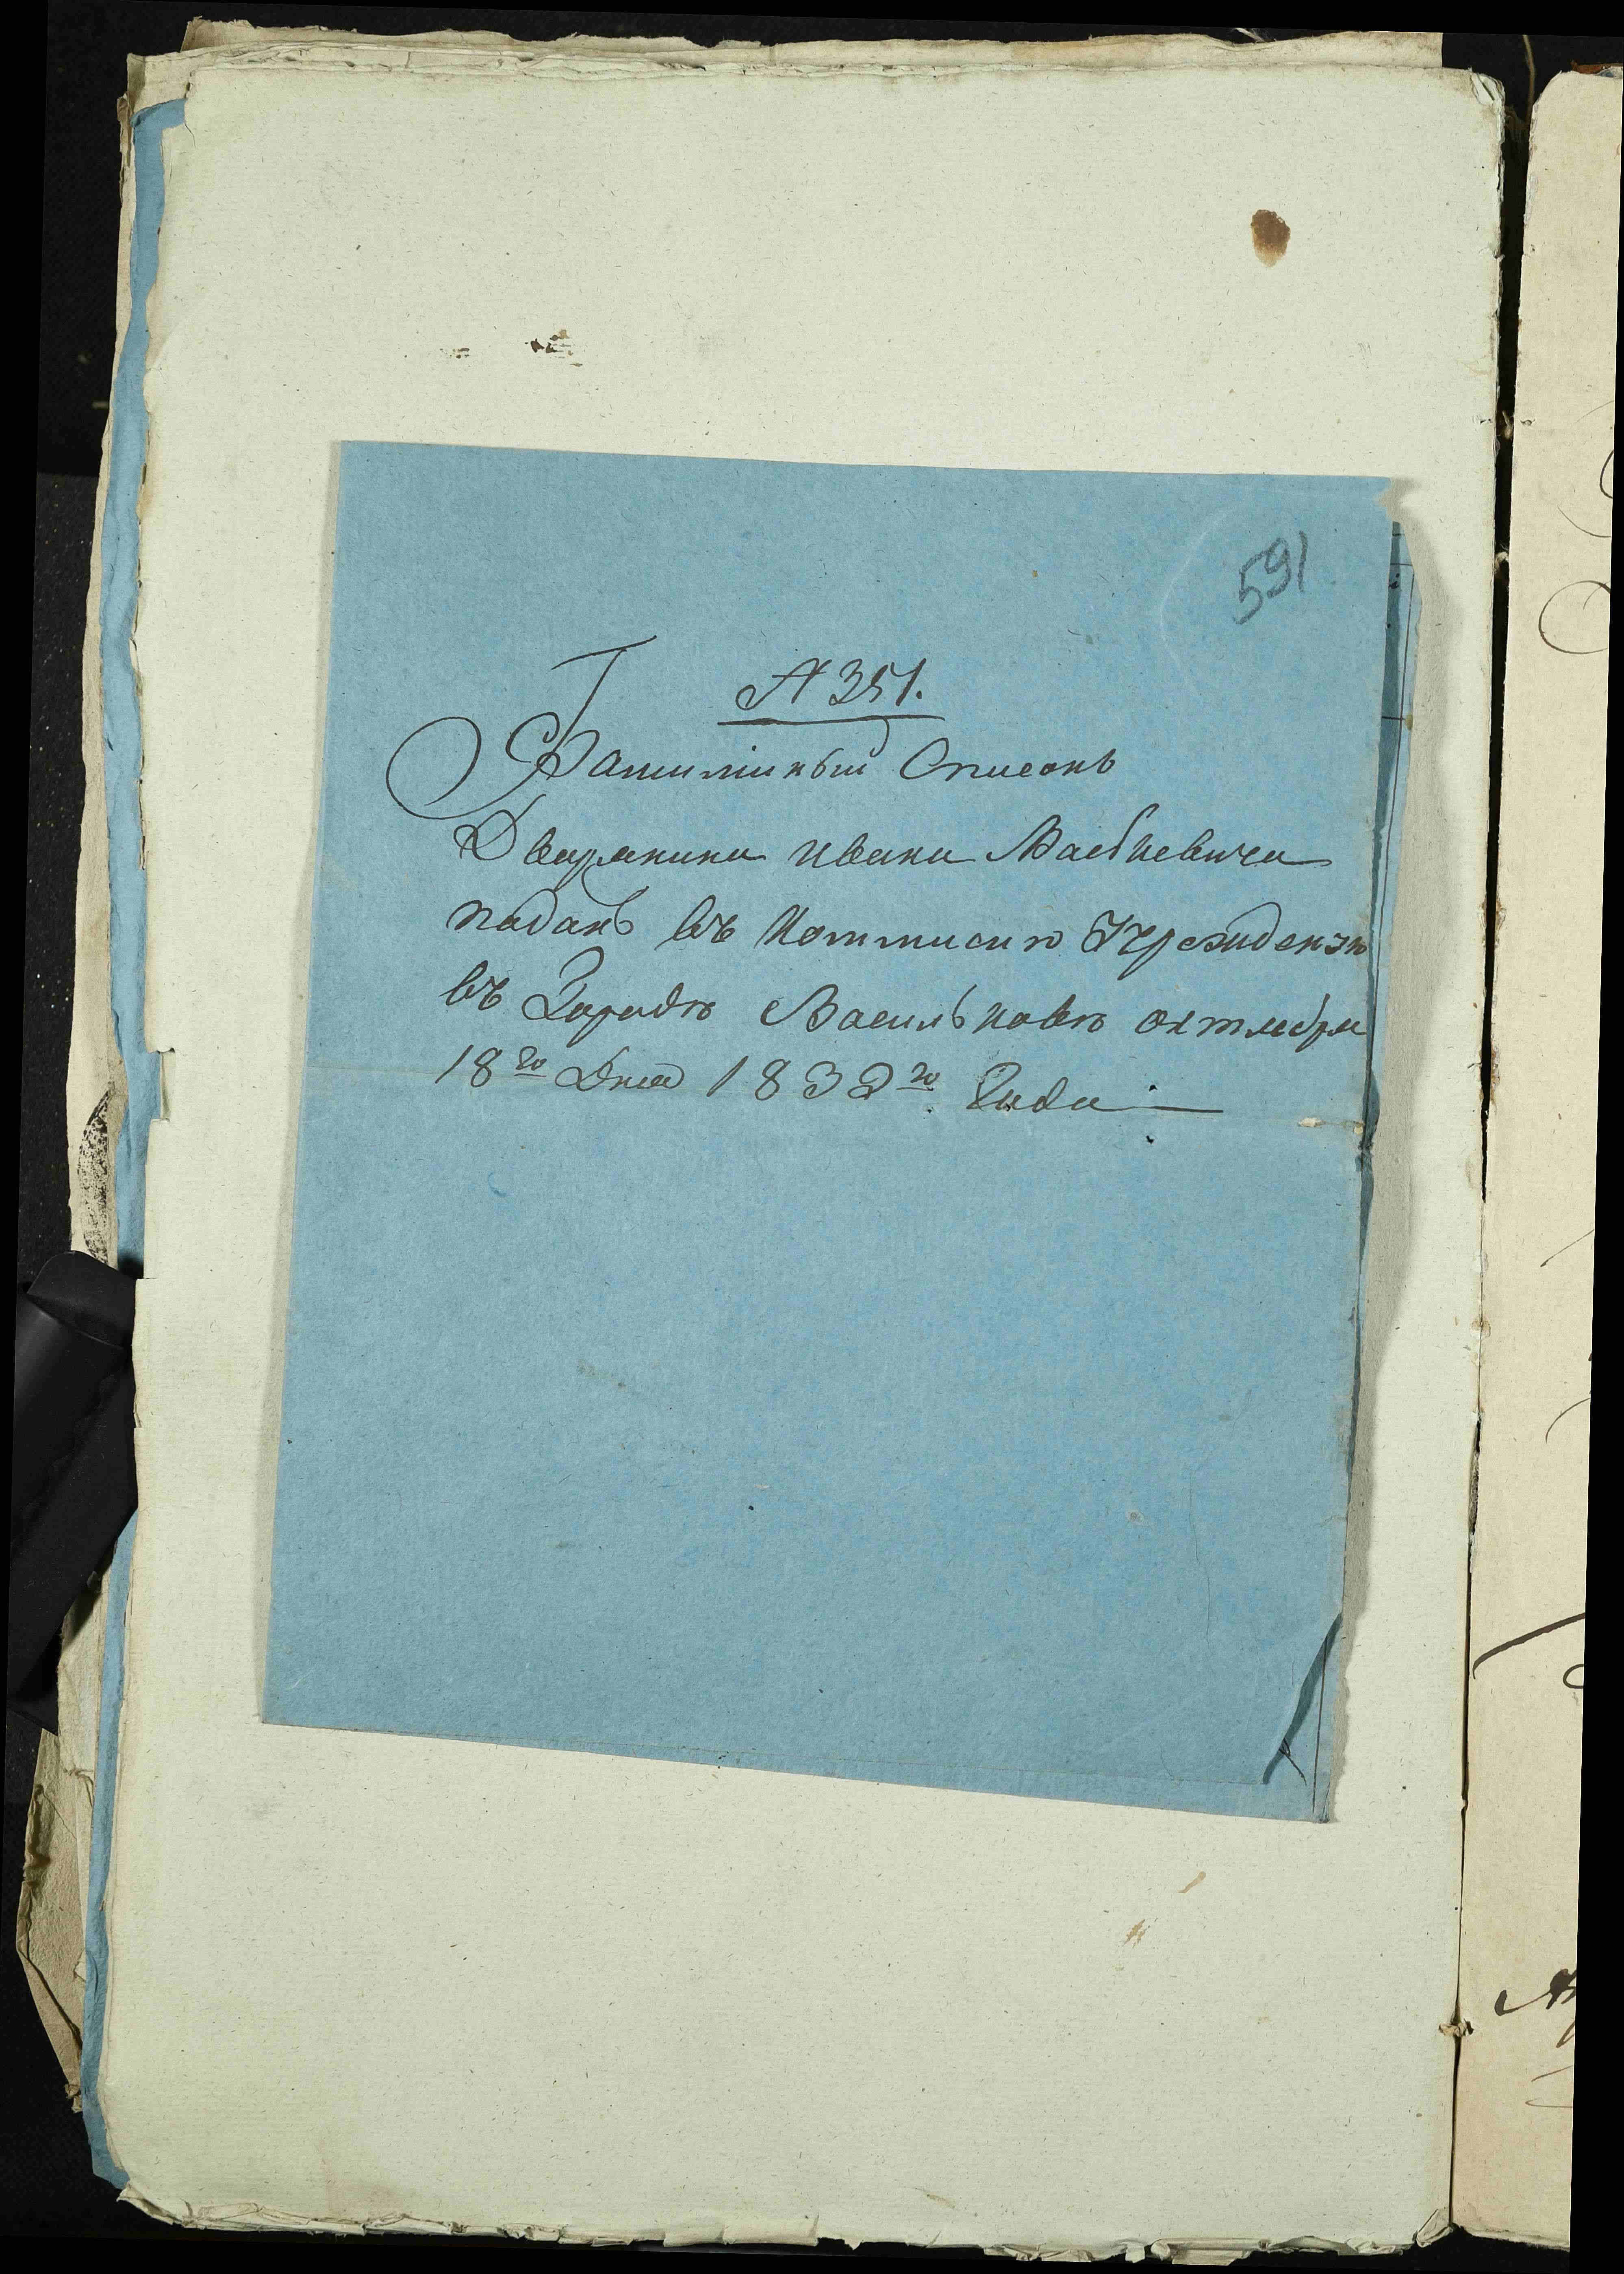 591
№ 351.
Фамилиный Список
Дворянина Ивана Васькевича
подан в Коммисию Учрежденую
въ Городѣ Василькове октября
18го Дня 1832го Года